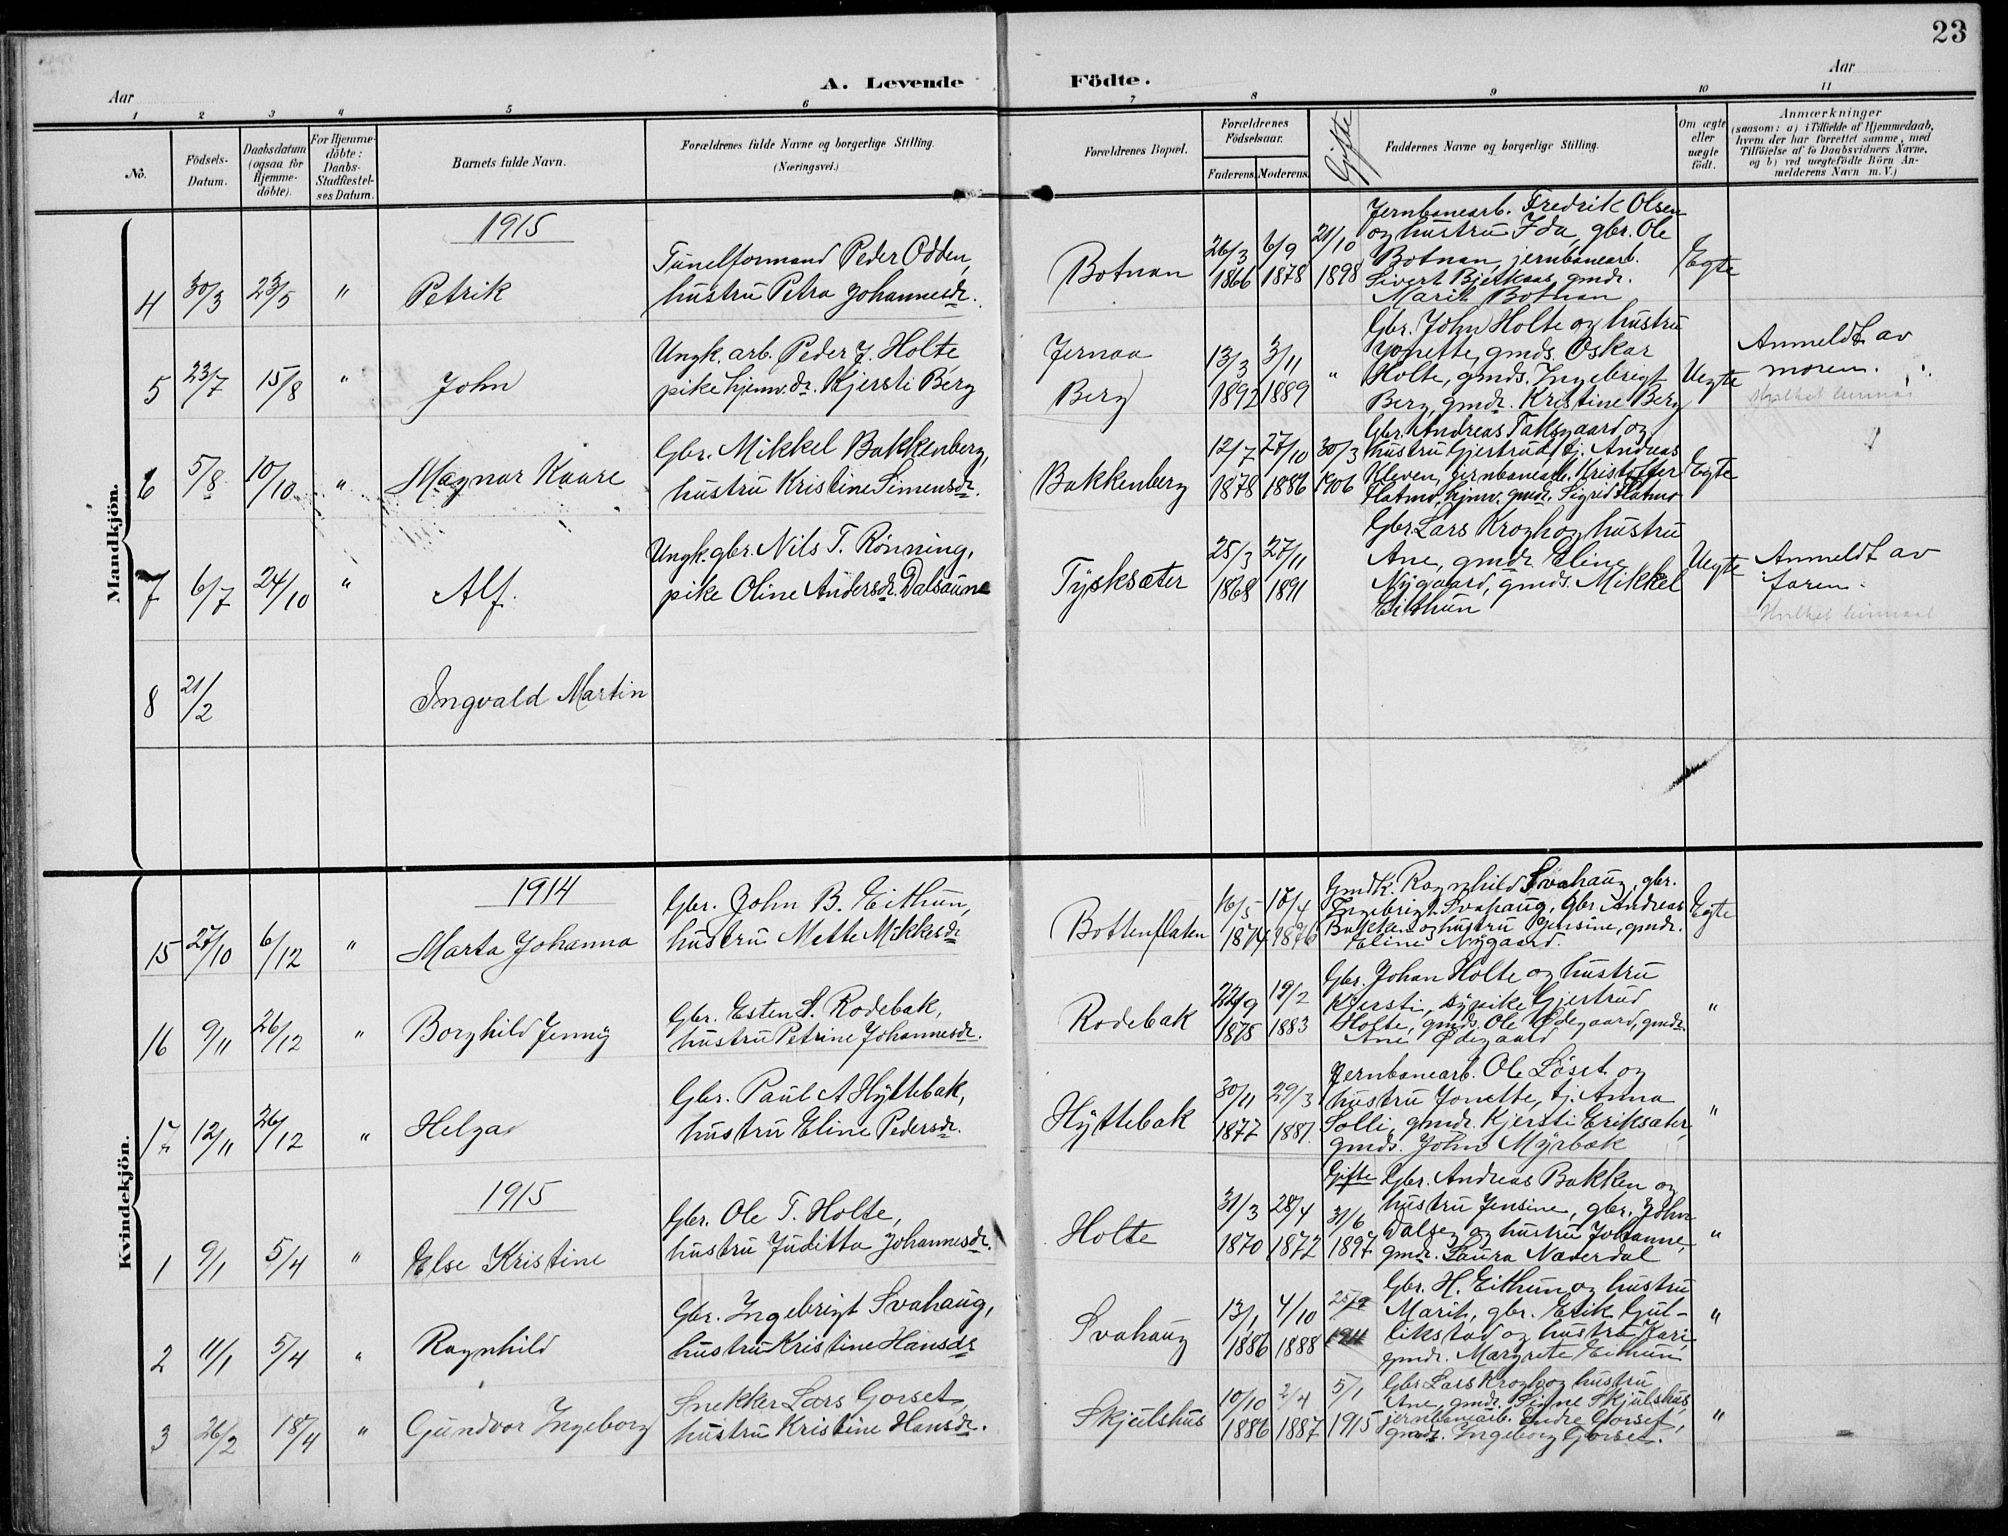 23
Aar
A. Levende
Födte.
Aar
1 2 3 4 5 6 7 8 9 10 11
No.
Födsels-
Datum.
Daabsdatum
(ogsaa for
Hjemme-
döbte).
For Hjemme-
döbte:
Daabs-
Stadfæstel-
ses Datum.
Barnets fulde Navn.
Forældrenes fulde Navne og borgerlige Stilling.
(Næringsvei.)
Forældrenes Bopæl.
Forældrenes
Födselsaar.
Faderens.
Moderens.
Gifte
Faddernes Navne og borgerlige Stilling.
Om ægte
eller
uægte
födt.
Anmærkninger
(saasom: a) i Tilfælde af Hjemmedaab,
hvem der har forrettet samme, med
Tilföielse af to Daabsvidners Navne,
og b) ved uægtefödte Börn An-
melderens Navn m. V.)
Mandkjön.
1915
4 30/3 23/5 "
Petrik
Tunelformand Peder Odden,
hustru Petra Johannesdr.
Botnan
26/3 1866
6/9 1878
21/10 1898
Jernbanearb. Fredrik Olsen
og hustru Ida, gbr. Ole
Botnan, jernbanearb.
Sivert Bjerkaas, gmdr.
Marit Botnan
Egte
5 23/7 15/8 "
John
Ungk. arb. Peder J. Holte
pike hjemv. dr. Kjersti Berg
Jernaa
Berg
13/3 1892
3/11 1889
"
Gbr. John Holte og hustru
Jonette, gmds. Oskar
Holte, gmds. Ingebrigt
Berg, gmdr. Kristine Berg
Uegte
Anmeldt av
moren.
6 5/8 10/10 "
Magnar Kaare
Gbr. Mikkel Bakkenberg,
hustru Kristine Simensdr.
Bakkenberg
12/7 1878
27/10 1886
30/3 1906
Gbr. Andreas Talsgaard og
hustru Gjertrud, tj. Andreas
Kleven, jernbanearb. Kristoffer
Flatmo, hjmv. gmdr. Sigrid Flatmo
Egte
7 6/7 24/10 "
Alf.
Ungk. gbr. Nils T. Rønning,
pike Oline Andersdr. Dalsaune
Tysksæter
25/3 1868
27/11 1891
Gbr. Lars Krogh og hustru
Ane, gmdr. Eline
Nygaard, gmds. Mikkel
Eithun
Uegte
Anmeldt av
faren.
8 21/2
Ingvald Martin
Kvindekjön.
1914
15 27/10 6/12 "
Marta Johanna
Gbr. John B. Eithun,
hustru Mette Mikkelsdr.
Bottenflaten
16/5 1874
17/4 1876
Gmdk. Ragnhild Svahaug, gbr.
Ingebrigt Svahaug, Gbr Andreas
Bakken og hustru Jensine, gmdr.
Eline Nygaard.
Egte
16 9/11 26/12 "
Borghild Jenny
Gbr. Esten S. Rodebak,
hustru Petrine Johannesdr.
Rodebak
22/9 1875
19/2 1883
Gbr. Johan Holte og hustru
Kjersti, sypike Gjertrud
Holte, gmds. Ole Ødegaard, gmdr.
Ane Ødegaard
"
17 12/11 26/12 "
Helga
Gbr. Paul A Hyttebak,
hustru Eline Pedersdr.
Hyttebak
30/11 1877
29/3 1881.
Jernbanearb. Ole Løset og
hustru Jonette, tj. Anna
Solli, gmdr. Kjersti Eriksæter,
gmds. John Myrbæk
"
1915
1 9/1 5/4 "
Else Kristine
Gbr. Ole T. Holte,
hustru Juditta Johannesdr.
Holte
31/3 1870
28/4 1872
Gifte
31/6 1897
Gbr. Andreas Bakken og
hustru Jensine, gbr. John
Dalseg og hustru Johanne,
gmdr. Laura Næverdal
"
2 11/1 5/4 "
Ragnhild
Gbr. Ingebrigt Svahaug,
hustru Kristine Hansdr
Svahaug
13/1 1886
4/10 1888
1911
Gbr. H. Eithun og hustru
Marit, gbr. Erik Gul-
likstad og hustru Kari,
gmdr. Margrete Eithun
"
3 26/2 18/4 "
Gundvor Ingeborg
Snekker Lars Gorset,
hustru Kristine Hansdr.
Skjulshus
10/10 1886
2/4 1887
5/1 1915
Gbr Lars Krogh og hustru
Ane, gmdr. Signe Skjulshus,
jernbanearb. Endre Gorset,
gmdr. Ingeborg Gorset.
"